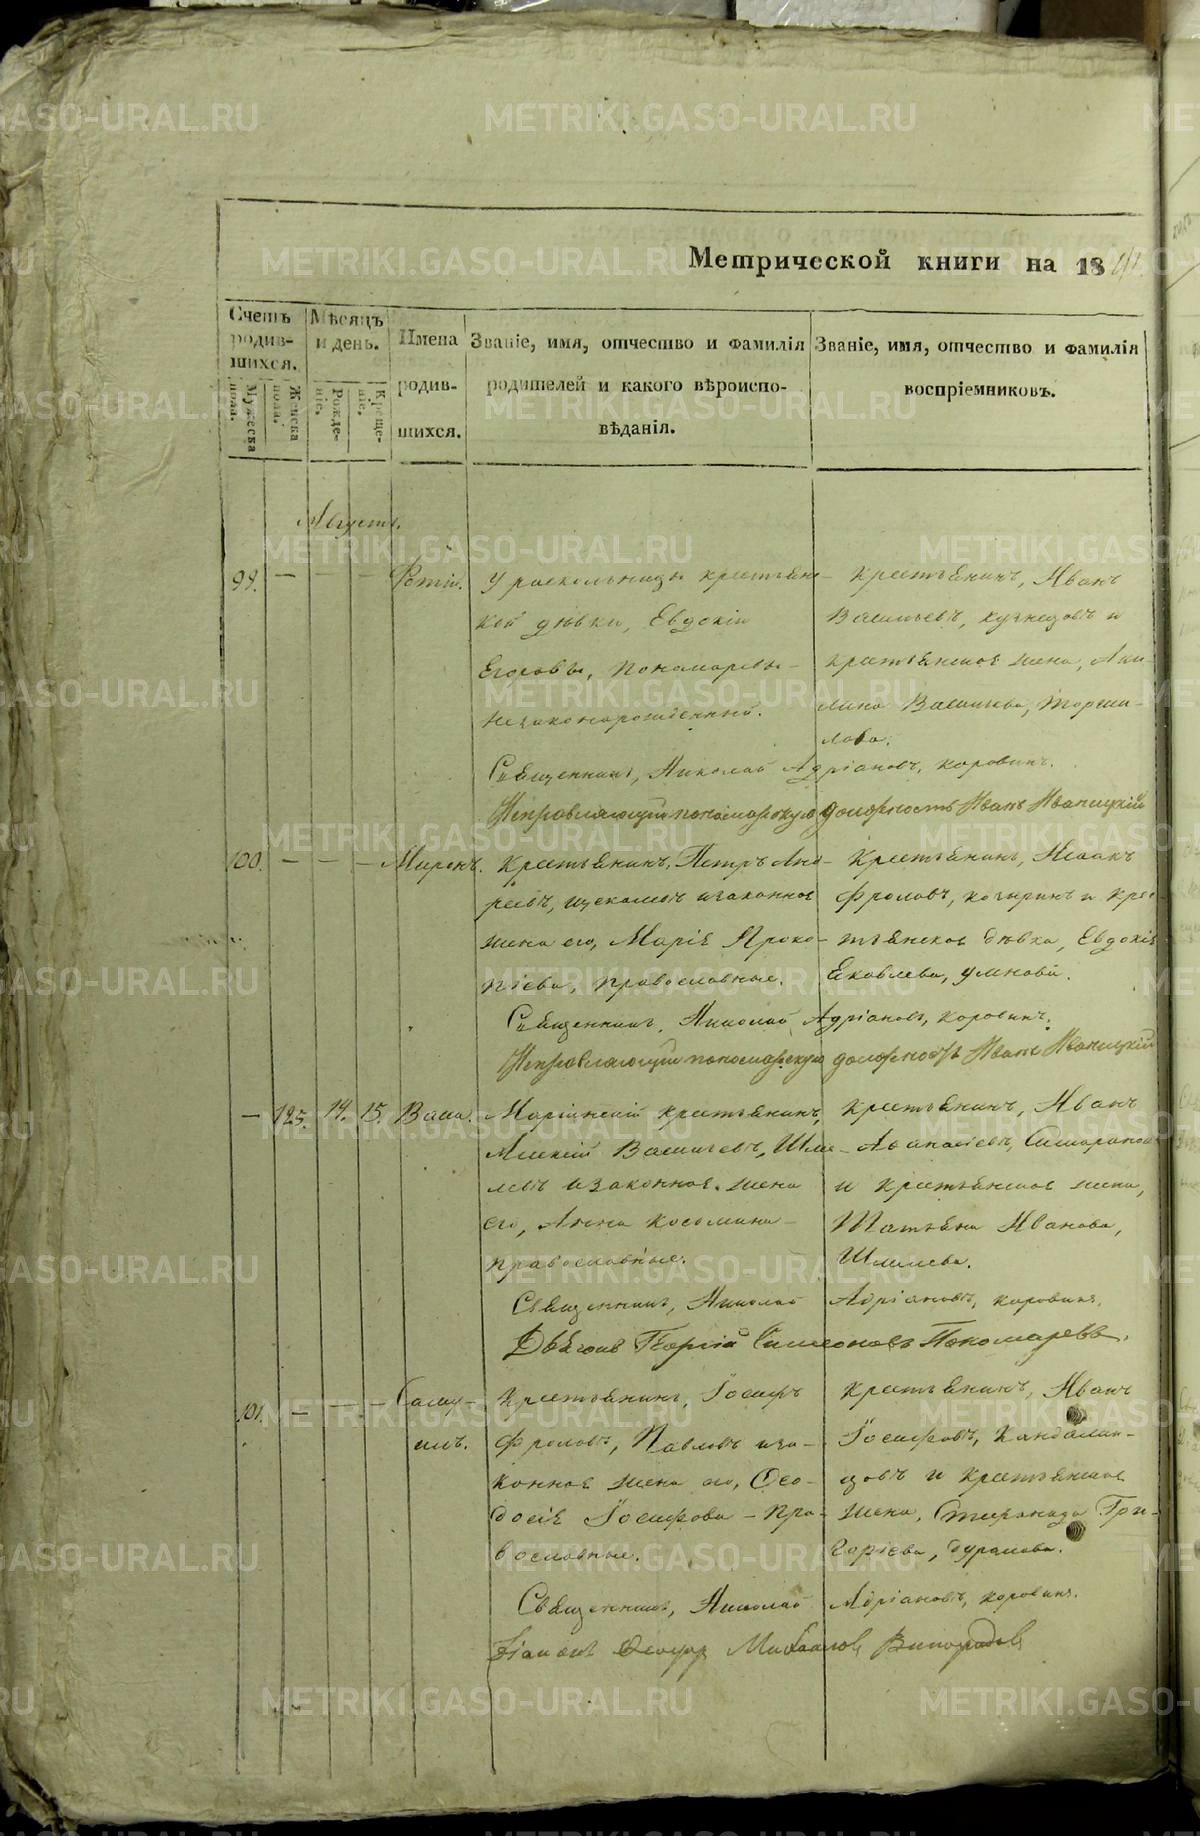 Метрической книги на 18
Счетъ родившихся.
Мужеска пола.
Женска пола.
Мѣсяцъ и день.
Рожденіе.
Крещеніе.
Имена родившихся.
Званіе, имя, отчество и фамилія родителей и какого вѣроисповѣданія.
Званіе, имя, отчество и фамилія воспріемниковъ.
Августъ.
99. — — — Фотій.
У раскольницы крестьянс-
кой дѣвки, Евдокіи
Егоровы, Пономаревы
незаконорожденный.
Крестьянинъ, Иванъ
Васильевъ, Кузнецовъ и
крестьянская жена, Аки-
лина Васильева,
Священникъ, Николай Адріановъ, Коровинъ.
Исправляющій пономарскую должность Иванъ Иваницкій
100. — — — Миронъ.
Крестьянинъ, Петръ Анд-
реевъ, и законная
жена его, Марія Проко-
піева, православные.
Крестьянинъ, Исаакъ
Фроловъ, и крес-
тьянская дѣвка, Евдокія
Яковлева, Умнова.
Священникъ, Николай Адріановъ, Коровинъ.
Исправляющій пономарскую должность Иванъ Иваницкій
— 125. 14. 15. Васса.
крестьянинъ,
Алексій Васильевъ, Шме-
левъ и законная жена
его, Анна Косомина
православные.
Крестьянинъ, Иванъ
Аѳанасіевъ,
и крестьянская жена,
Татьяна Иванова,
Шмелева.
Священникъ, Николай Адріановъ, Коровинъ.
Дьячокъ Георгій Симеоновъ Пономаревъ.
101. — — — Саму-
илъ.
Крестьянинъ, Іосифъ
Фроловъ, Павловъ и за-
конная жена его, Ѳео-
досія Іосифова — пра-
вославные.
Крестьянинъ, Иванъ
Іосифовъ,
и крестьянская
жена, Гри-
горіева,
Священникъ, Николай Адріановъ, Коровинъ.
Діаконъ Михайловъ Виноградовъ
METRIKI.GASO-URAL.RU